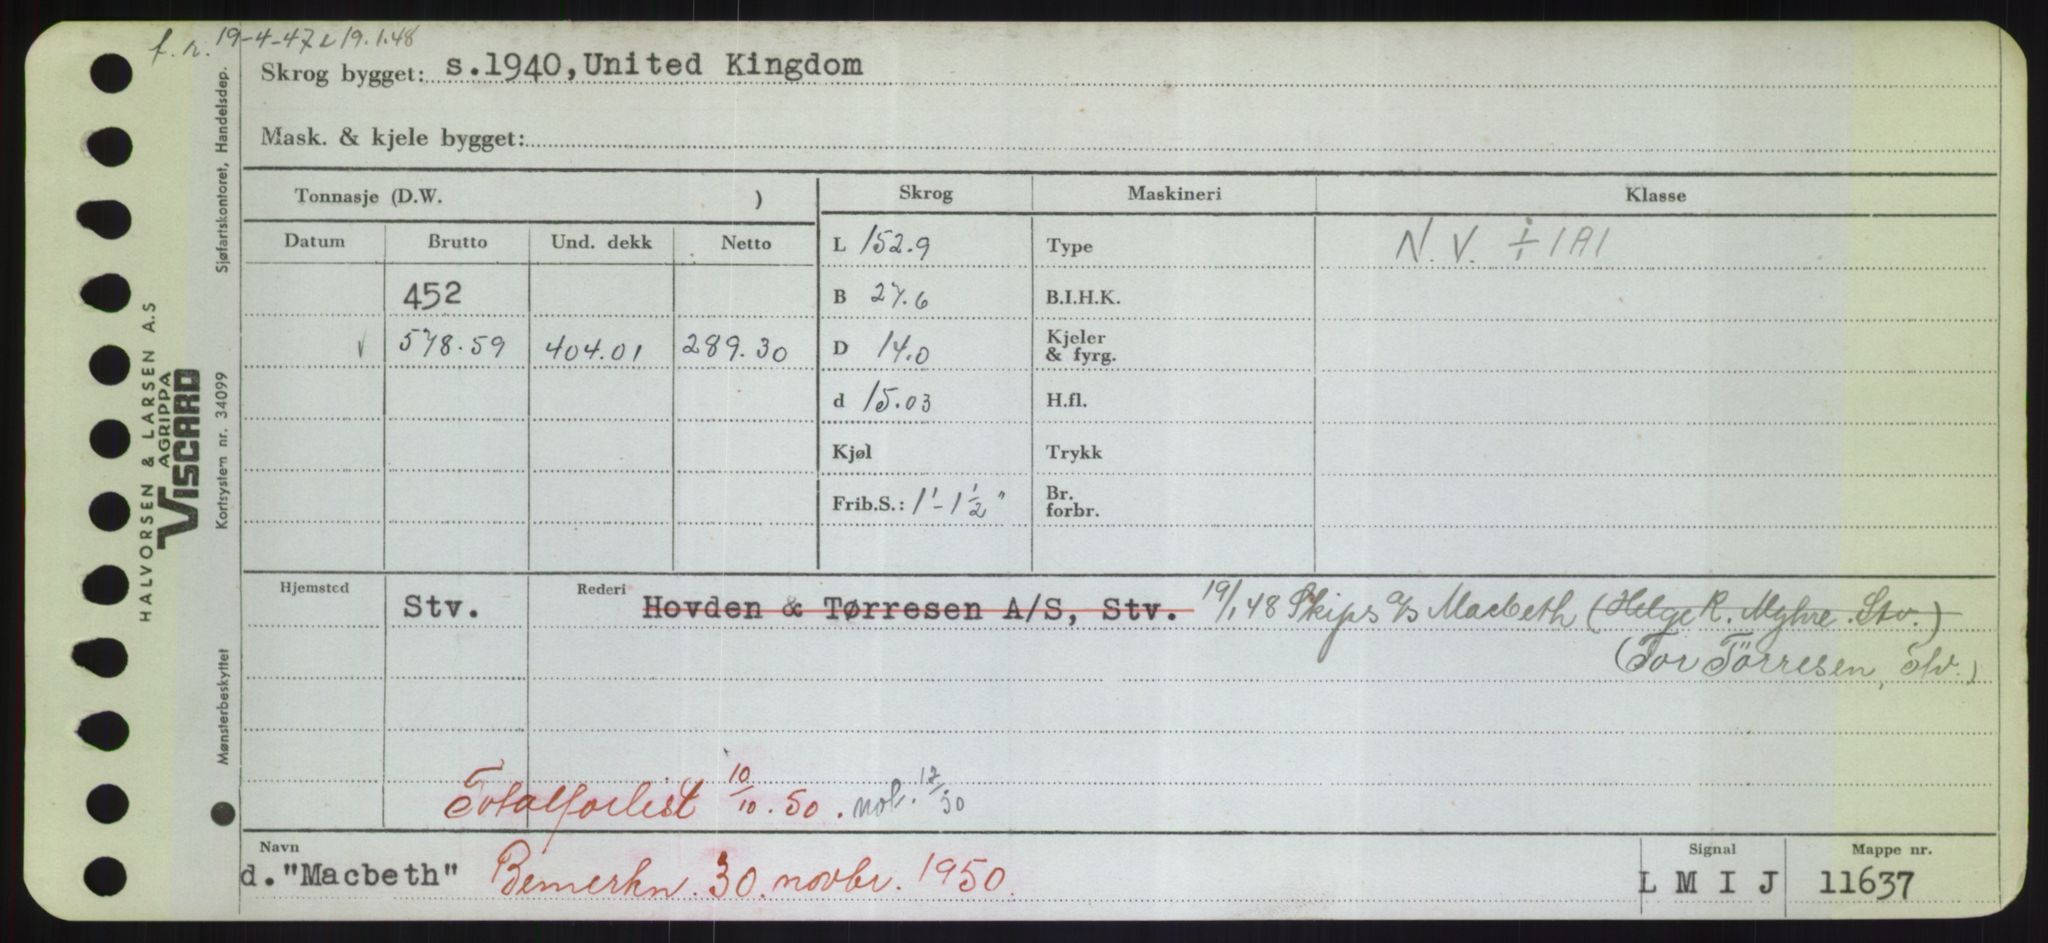 f. r. 19-4-47 & 19.1.48
Skrog bygget: s.1940, United Kingdom
Mask. & kjele bygget:
Tonnasje (D.W. )
Skrog Maskineri Klasse
Datum Brutto Und. dekk Netto
L 152.9 Type N. V. ÷ 1A1
452
B 27.6 B.I.H.K.
√ 578.59 404.01 289.30
D 14.0 Kjeler & fyrg.
d 15.03 H.fl.
Kjøl Trykk
Frib.S.: 1'-1½" Br. forbr.
Hjemsted Rederi
Stv. Hovden & Tørresen A/S, Stv. 19/1 48 Skips a/s Macbeth (Helge R. Myhre. Stv.)
(Tor Törresen, Stv.)
Totalforlist 10/10. 50. not.
Navn Signal Mappe nr.
d. "Macbeth" Bemerkn. 30. novbr. 1950. L M I J 11637
HALVORSEN & LARSEN A.S
AGRIPPA
VISCARD
Sjøfartskontoret, Handelsdep.
Kortsystem nr. 34099
Mønsterbeskyttet